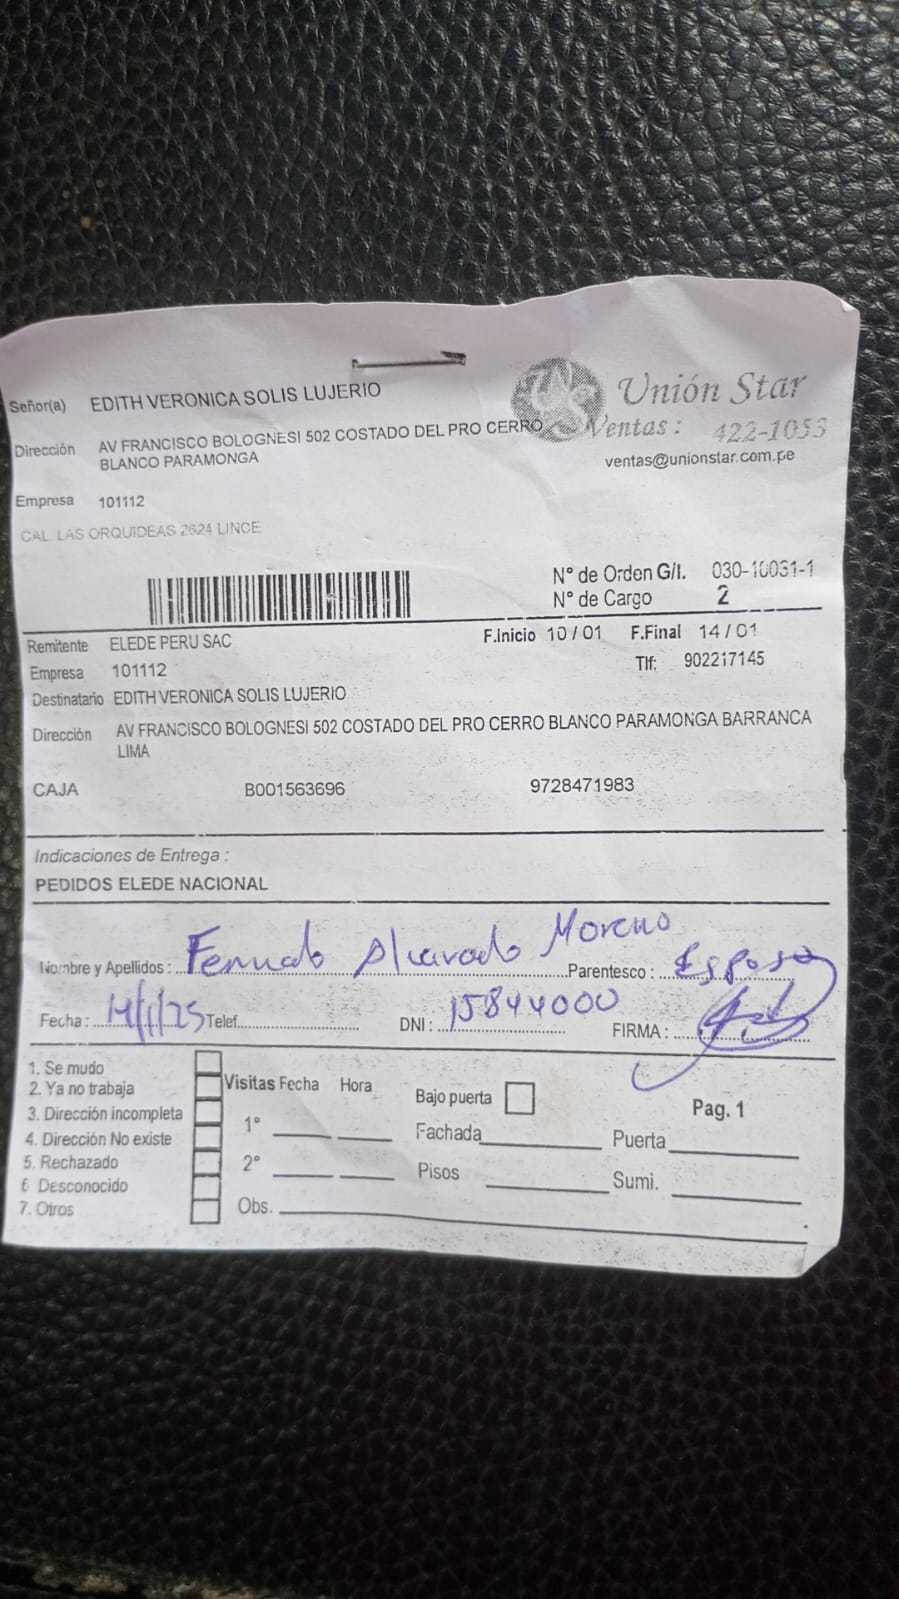 Señor(a) EDITH VERONICA SOLIS LUJERIO
Unión Star
Dirección AV FRANCISCO BOLOGNESI 502 COSTADO DEL PRO CERRO
BLANCO PARAMONGA
Ventas : 422-1053
ventas@unionstar.com.pe
Empresa 101112
CAL. LAS ORQUIDEAS 2624 LINCE
N° de Orden G/I. 030-10031-1
N° de Cargo 2
Remitente ELEDE PERU SAC F.Inicio 10 / 01 F.Final 14 / 01
Empresa 101112 Tlf: 902217145
Destinatario EDITH VERONICA SOLIS LUJERIO
Dirección AV FRANCISCO BOLOGNESI 502 COSTADO DEL PRO CERRO BLANCO PARAMONGA BARRANCA
LIMA
CAJA B001563696 9728471983
Indicaciones de Entrega :
PEDIDOS ELEDE NACIONAL
Nombre y Apellidos : Fernando Alvarado Moreno Parentesco : Esposo
Fecha : 14/1/25 Telef. DNI : 15844000 FIRMA :
1. Se mudo
2. Ya no trabaja
3. Dirección incompleta
4. Dirección No existe
5. Rechazado
6 Desconocido
7. Otros
Visitas Fecha Hora
1°
2°
Obs.
Bajo puerta
Fachada
Pisos
Pag. 1
Puerta
Sumi.